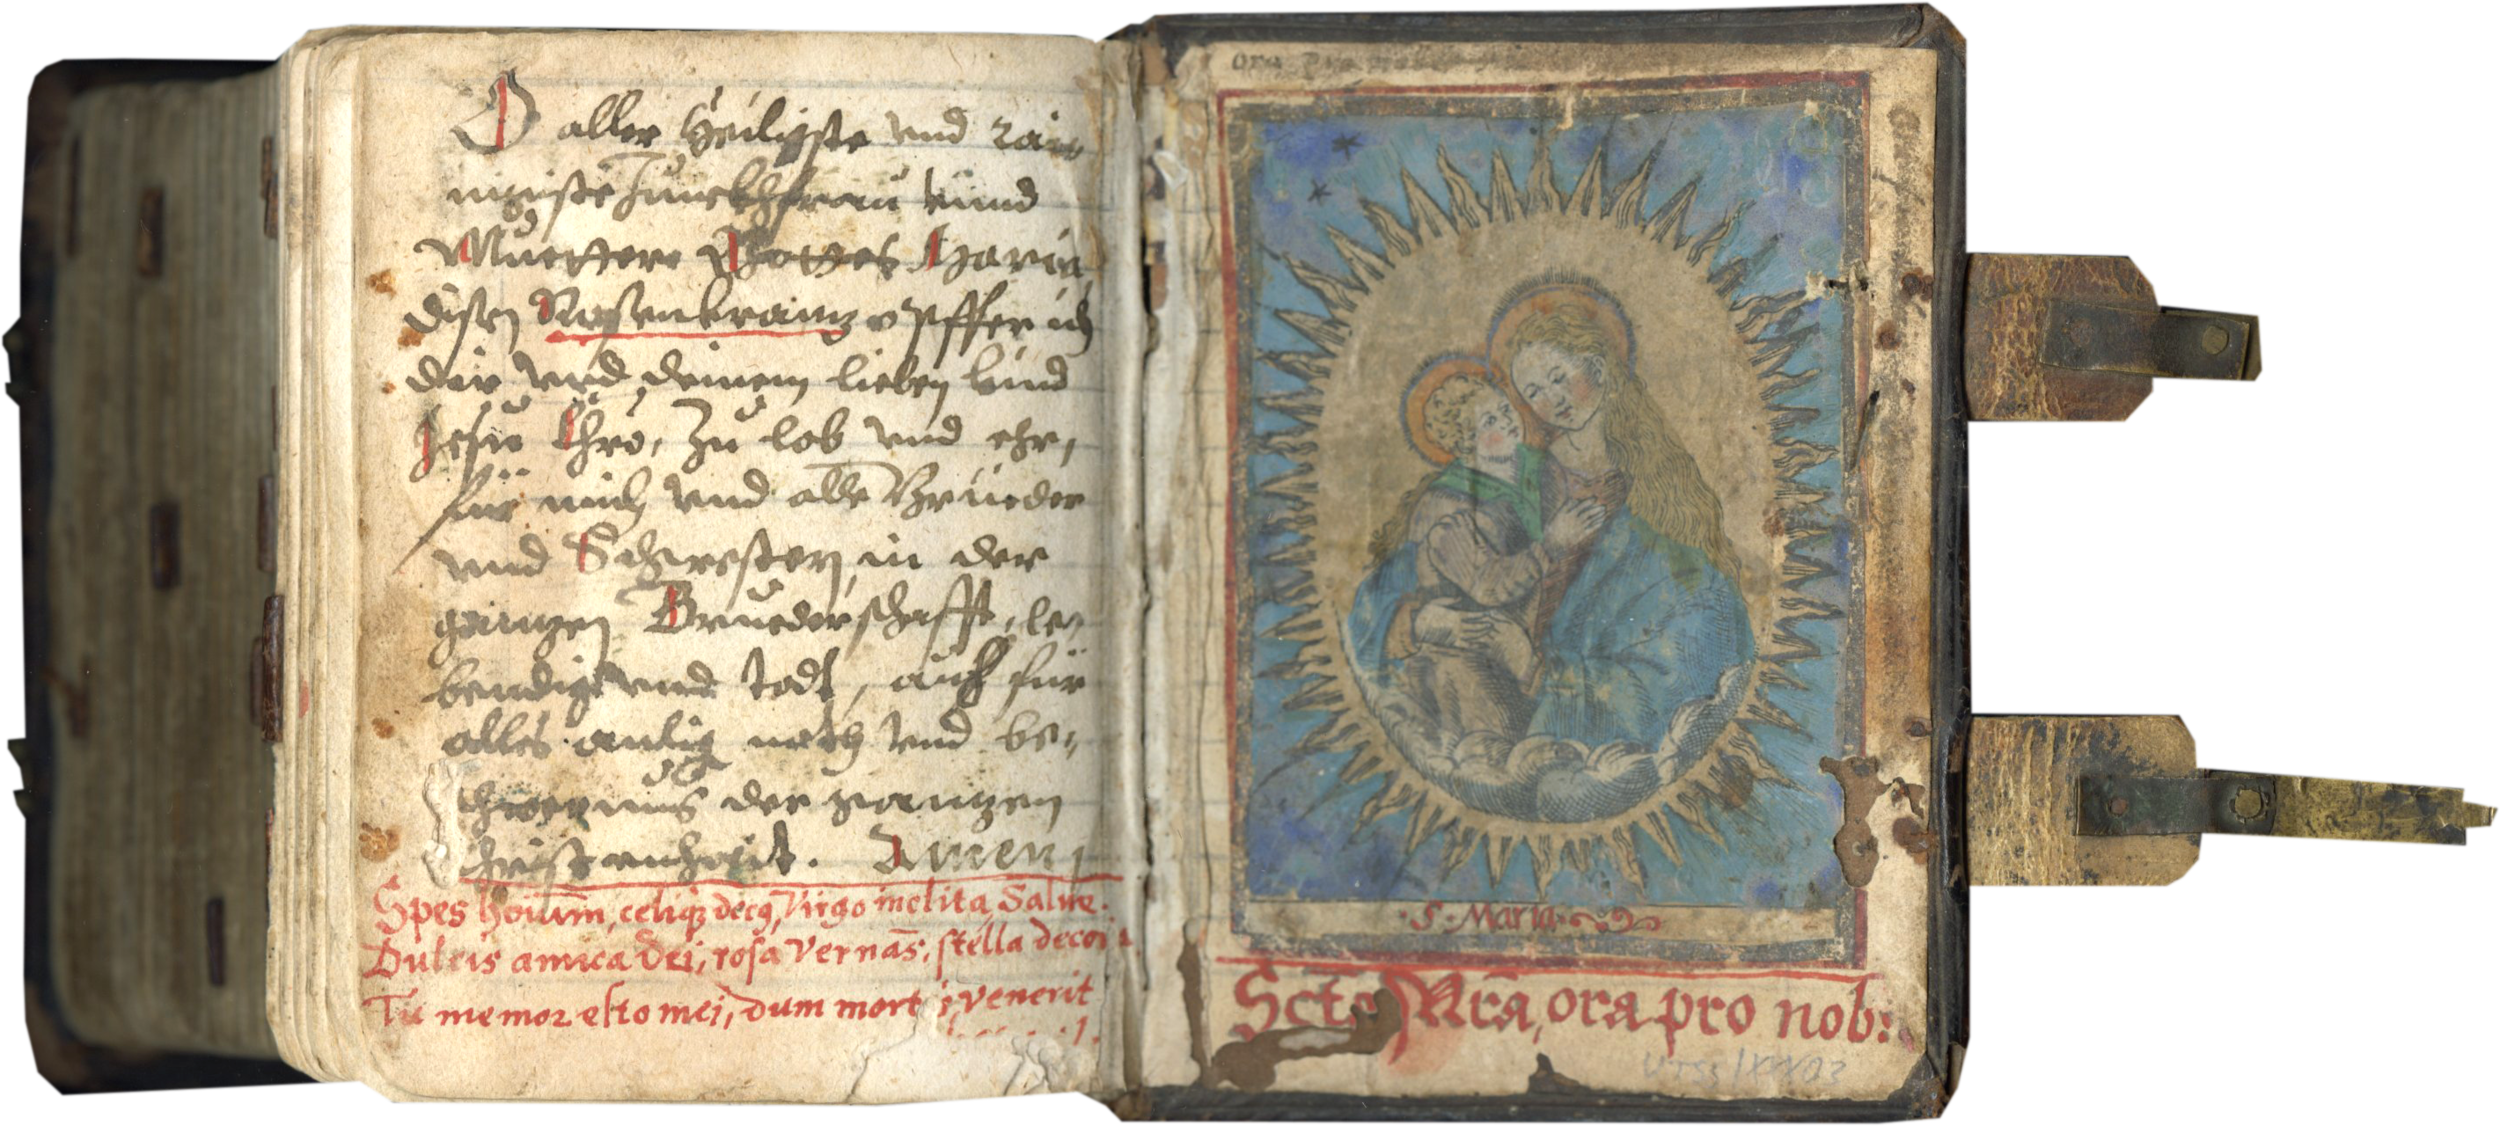 O aller Heiligste vnd rain
nigiste Junckhfrau vnnd
Muetter Gottes Maria
disen Rosenkrantz opffer ich
dir vnd deinem lieben kind
Jesu Chrō, Zu lob vnd ehr,
für mich vnd alle Brueder
vnd Schwestern, in der
gantzen Bruederschafft, le-
bendig vnd todt, auch für
alles anlig noth vnd be-
schwernus der gantzen
Christenhait. Amen
Spes hōium, celiq; decus, Virgo inclita, Salue.
Dulcis amica Dei, rosa Vernās, stella decora
Tu memor esto mei, dum mortis venerit
Ora
S. Maria
Sctā Mrā, ora pro nob: